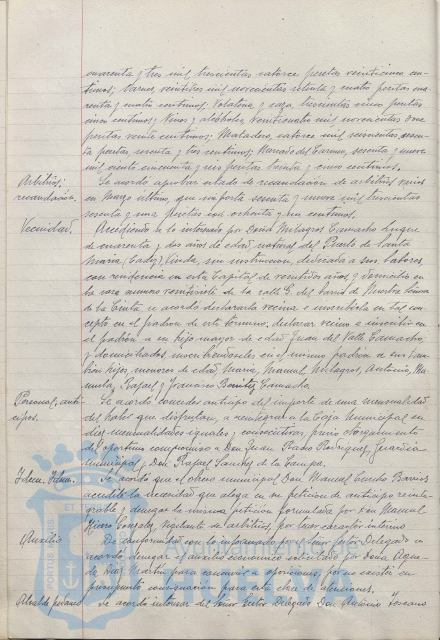 cuarenta y tres mil trescientas catorce pesetas veinticinco cén-
timos; Carnes, veintitres mil novecientas setenta y cuatro pesetas cua-
renta y cuatro céntimos; Volatería y caza, trescientas cinco pesetas
cinco céntimos; Vinos y alcoholes, veinticuatro mil novecientas once
pesetas veinte céntimos; Matadero, catorce mil seiscientas sesen-
ta pesetas sesenta y tres céntimos; Mercado del Carmen, sesenta y nueve
mil ciento cincuenta y seis pesetas treinta y cinco céntimos.
Arbitrios;
recaudación.
Se acordó aprobar estado de recaudación de arbitrios varios
en Marzo último, que importa sesenta y nueve mil trescientas
sesenta y una pesetas con ochenta y un céntimos.
Vecindad.
Accediendo a lo interesado por Doña Milagros Camacho Luque
de cuarenta y dos años de edad, natural del Puerto de Santa
María (Cadiz), Viuda, sin instrucción, dedicada a sus labores,
con residencia en esta Capital de veintidos años y domicilio en
la casa número veintisiete de la calle G. del barrio de Nuestra Señora
de la Cinta, se acordó declararla vecina e inscribirla en tal con-
cepto en el padrón de este término; declarar vecino e inscribir en
el padrón a su hijo mayor de edad Juan del Valle Camacho,
y domiciliados, inscribiéndoles en el mismo padrón a sus tam-
bién hijos, menores de edad María, Manuel, Milagros, Antonio, Ma-
nuela, Rafael y Francisco Benítez Camacho.
Personal; anti-
cipos.
Se acordó conceder anticipo del importe de una mensualidad
del haber que disfrutan, a reintegrar a la Caja Municipal en
diez mensualidades iguales y consecutivas, previo otorgamiento
del oportuno compromiso a Don Juan Prado Rodríguez, Guardia
Municipal y Don Rafael Sánchez de la Campa.
Idem. Idem.
Se acordó que el obrero municipal Don Manuel Barrios
acredite la necesidad que alega en su petición de anticipo reinte-
grable y denegar la misma petición formulada por Don Manuel
González, vigilante de arbitrios, por tener carácter interino.
Auxilio
De conformidad con lo informado por el Señor Gestor Delegado se
acordó denegar el auxilio económico solicitado por Doña
Díaz Martín para concurrir a oposiciones, por no existir en
presupuesto consignación para esta clase de atenciones.
Alcalde pedáneo
Se acordó interesar del Señor Gestor Delegado Don Antonio Toscano
PORTUS MARIS ET TERRAE